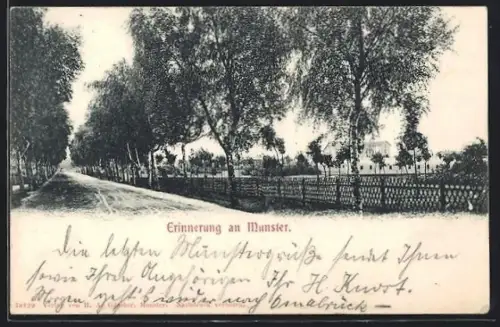 Erinnerung an Munster.
Die letzten Munstergrüße sendet Ihnen
sowie Ihren Angehörigen Ihr H. Knost.
Morgen geht's wieder nach Osnabrück –
Verlag von H. A. Munster.